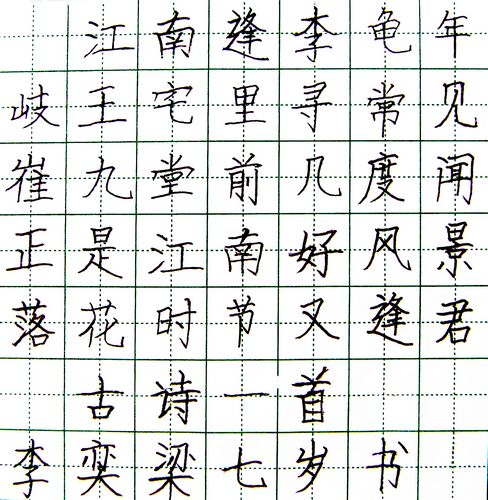 江南逢李龟年
岐王宅里寻常见
崔九堂前几度闻
正是江南好风景
落花时节又逢君
古诗一首
李奕梁七岁书